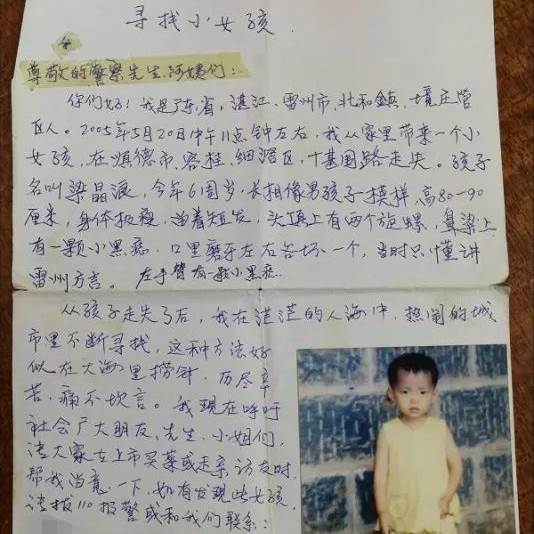 寻找小女孩
尊敬的警察先生.阿姨们:
你们好!我是广东省,湛江.雷州市.北和鎮.境庄管
区人。2005年5月20日中午11点钟左右,我从家里带来一个小
女孩,在順德市.容桂.细滘区,十基围路走失。孩子
名叫梁晶浪,今年6周岁.长相像男孩子一模样,高80—90
厘来,身体极瘦.留着短发,头顶上有两个旋螺,鼻梁上
有一颗小黑痣.口里磨牙左右各坏一个,当时只懂讲
雷州方言。左手臂有一颗小黑痣.
从孩子走失了后,我在茫茫的人海中,热闹的城
市里不断寻找,这种方法好
似在大海里捞针.历尽辛
苦.痛不坎言。我现在呼吁
社会广大朋友,先生.小姐们,
请大家在上市买菜或走亲访友时,
帮我当意一下,如有发现此女孩,
请拔110报警或和我们联系: